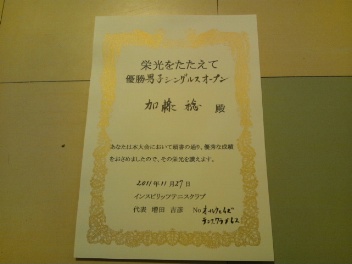 栄光をたたえて
優勝男子シングルスオープン
加藤 殿
あなたは本大会において頭書の通り、優秀な成績
をおさめましたので、その栄光を讃えます。
2011年11月27日
インスピリッツテニスクラブ
代表 増田 吉彦 No.